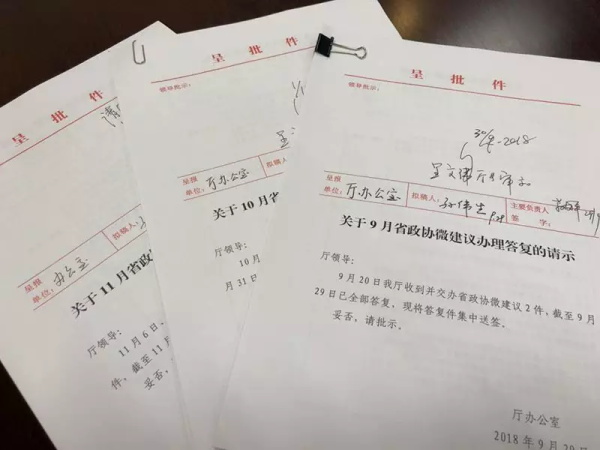 呈批件
呈报
单位:
办公室
拟稿人:
关于11月省政
厅领导:
11月6日、
件，截至11月
妥否，请批
呈批件
领导批示:
呈报
单位:
厅办公室
拟稿
关于10月省
厅领导:
10月
月31日
呈批件
领导批示:
30/9-2018
呈报
单位:
厅办公室
拟稿人:
主要负责人
签字:
关于9月省政协微建议办理答复的请示
厅领导:
9月20日我厅收到并交办省政协微建议2件，截至9月
29日已全部答复，现将答复件集中送签。
妥否，请批示。
厅办公室
2018年9月